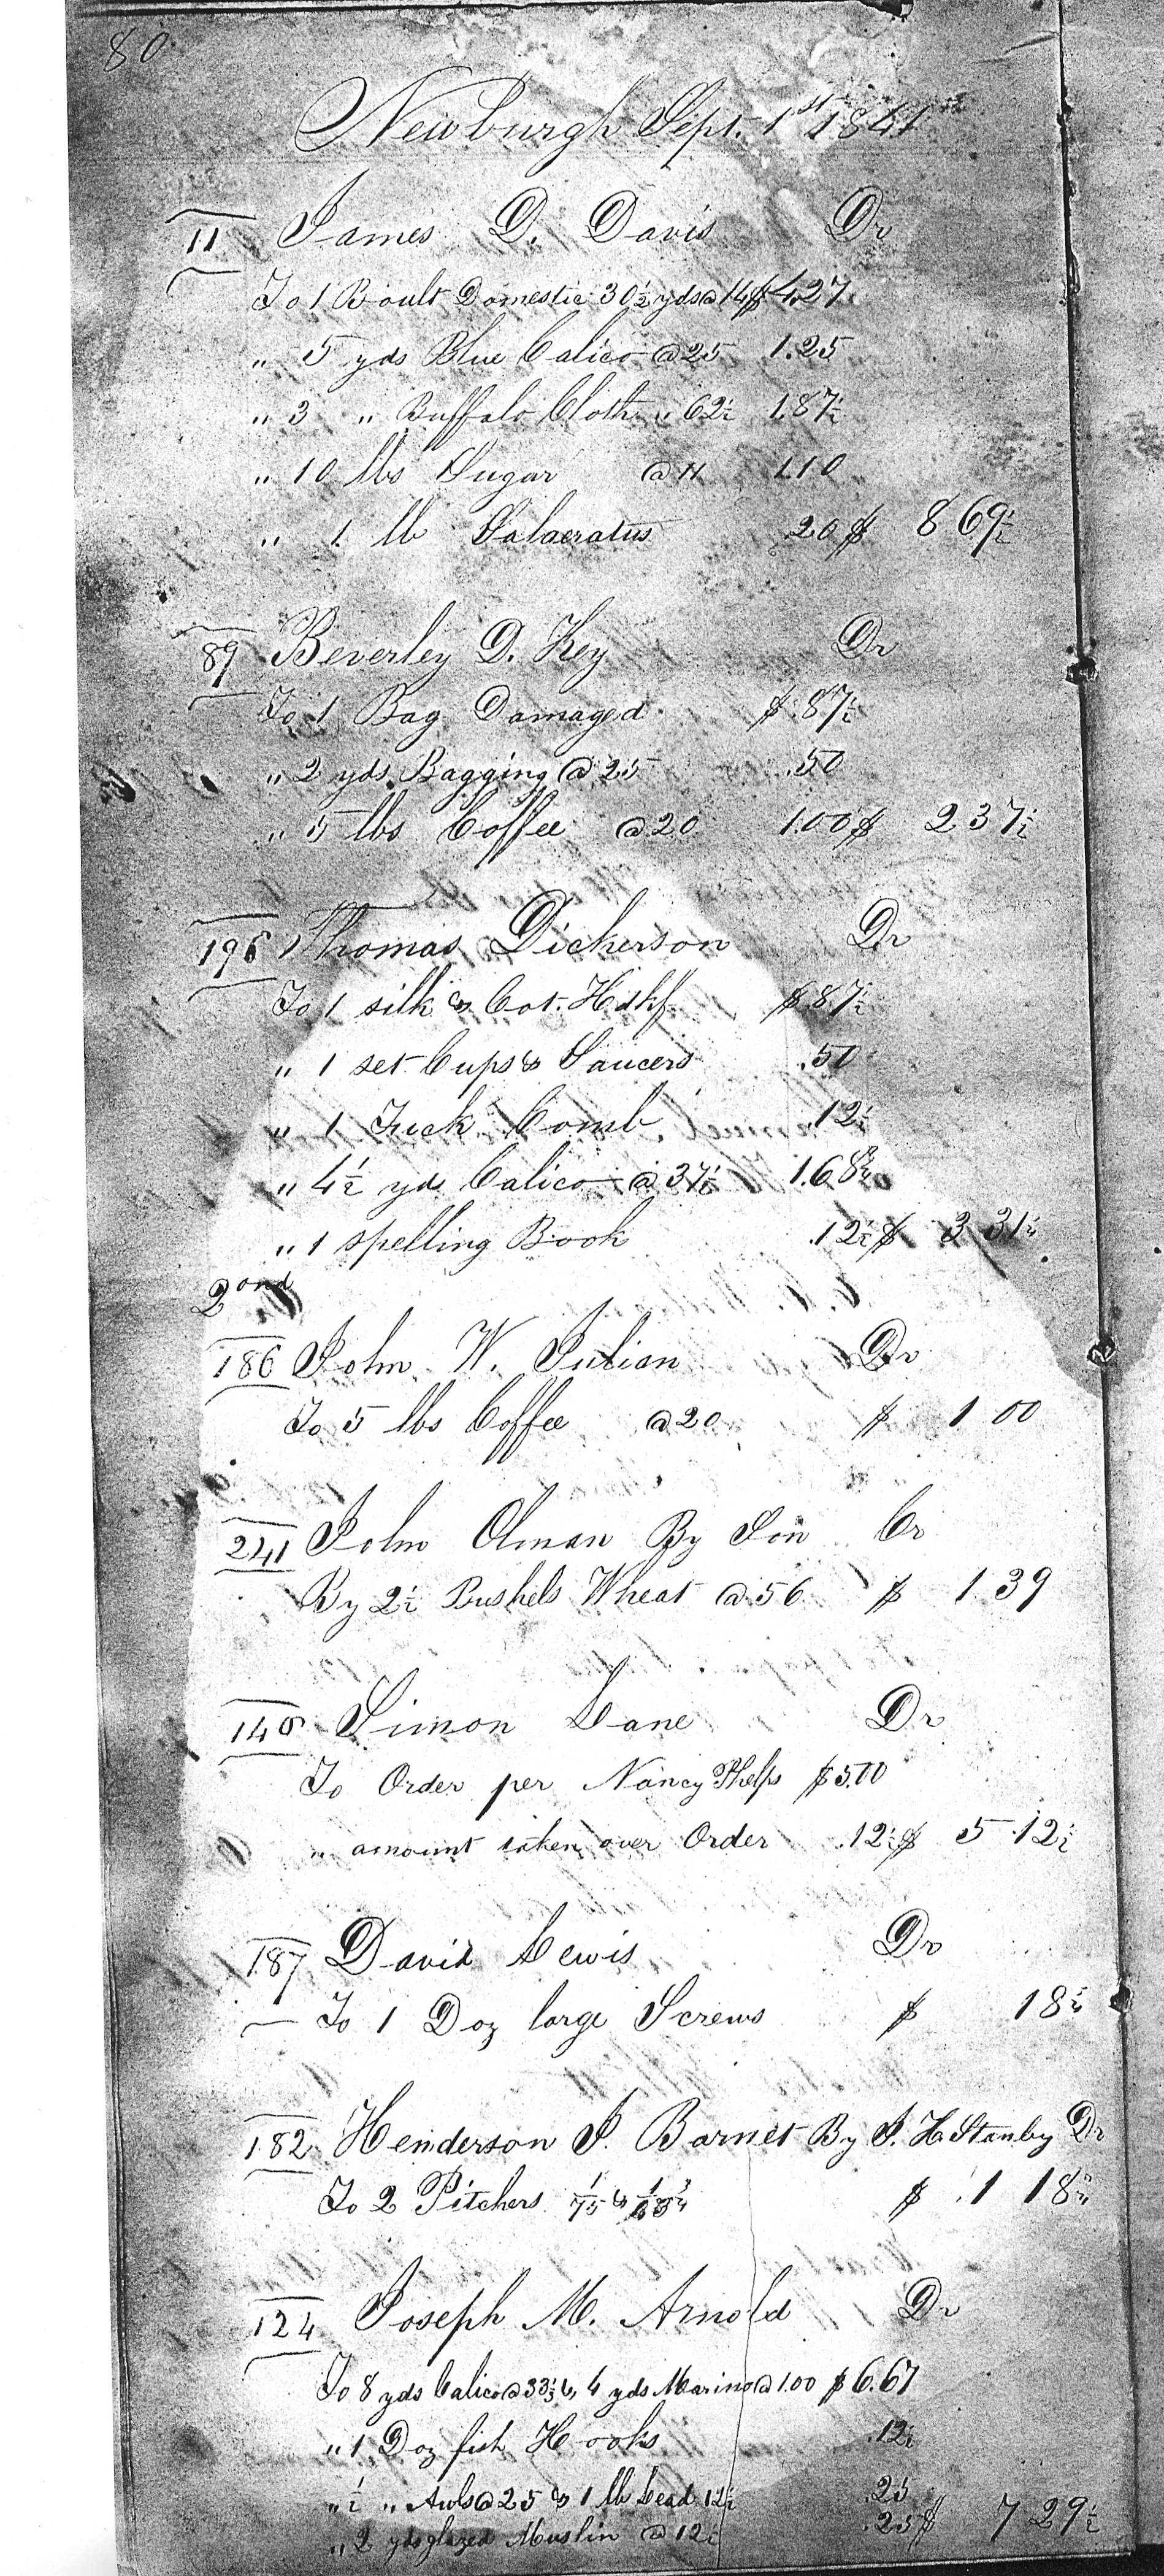 80
Newburgh Sept. 1st 1841
11 James D. Davis Dr
To 1 Boult Domestic 30½ yds @ 14 $ 4.27
" 5 yds Blue Calico @ 25 1.25
" 3 " Buffalo Cloth " 62½ 1.87½
" 10 lbs Sugar @ 11 1.10
" 1 lb Salaeratus .20 $ 8 69½
89 Beverley D. Key Dr
To 1 Bag Damaged $ .87½
" 2 yds Bagging @ 25 .50
" 5 lbs Coffee @ 20 1.00 $ 2 37½
196 Thomas Dickerson Dr
To 1 silk & Cot. Hdkf $ .87½
" 1 set Cups & Saucers .50
" 1 Tuck Comb .12½
" 4½ yds Calico @ 37½ 1.68¾
" 1 spelling Book .12½ $ 3 31¼
2ond
186 John W. Julian Dr
To 5 lbs Coffee @ 20 $ 1 00
241 John Olman By Son Cr
By 2½ Bushels Wheat @ 56 $ 1 39
146 Simon Lane Dr
To Order per Nancy Phelps $ 5.00
" amount taken over Order .12½ $ 5 12½
187 David Lewis Dr
To 1 Doz large Screws $ 18¾
182 Henderson J. Barnet By J. H Stanby Dr
To 2 Pitchers 1/75 & 1/43¾ $ 1 18¾
124 Joseph M. Arnold Dr
To 8 yds Calico @ 33⅓ & 4 yds Marino @ 1.00 $ 6.67
" 1 Doz fish Hooks .12½
" ½ " Awls @ 25 & 1 lb Lead 12½ .25
" 2 yds glazed Muslin @ 12½ .25 $ 7 29½